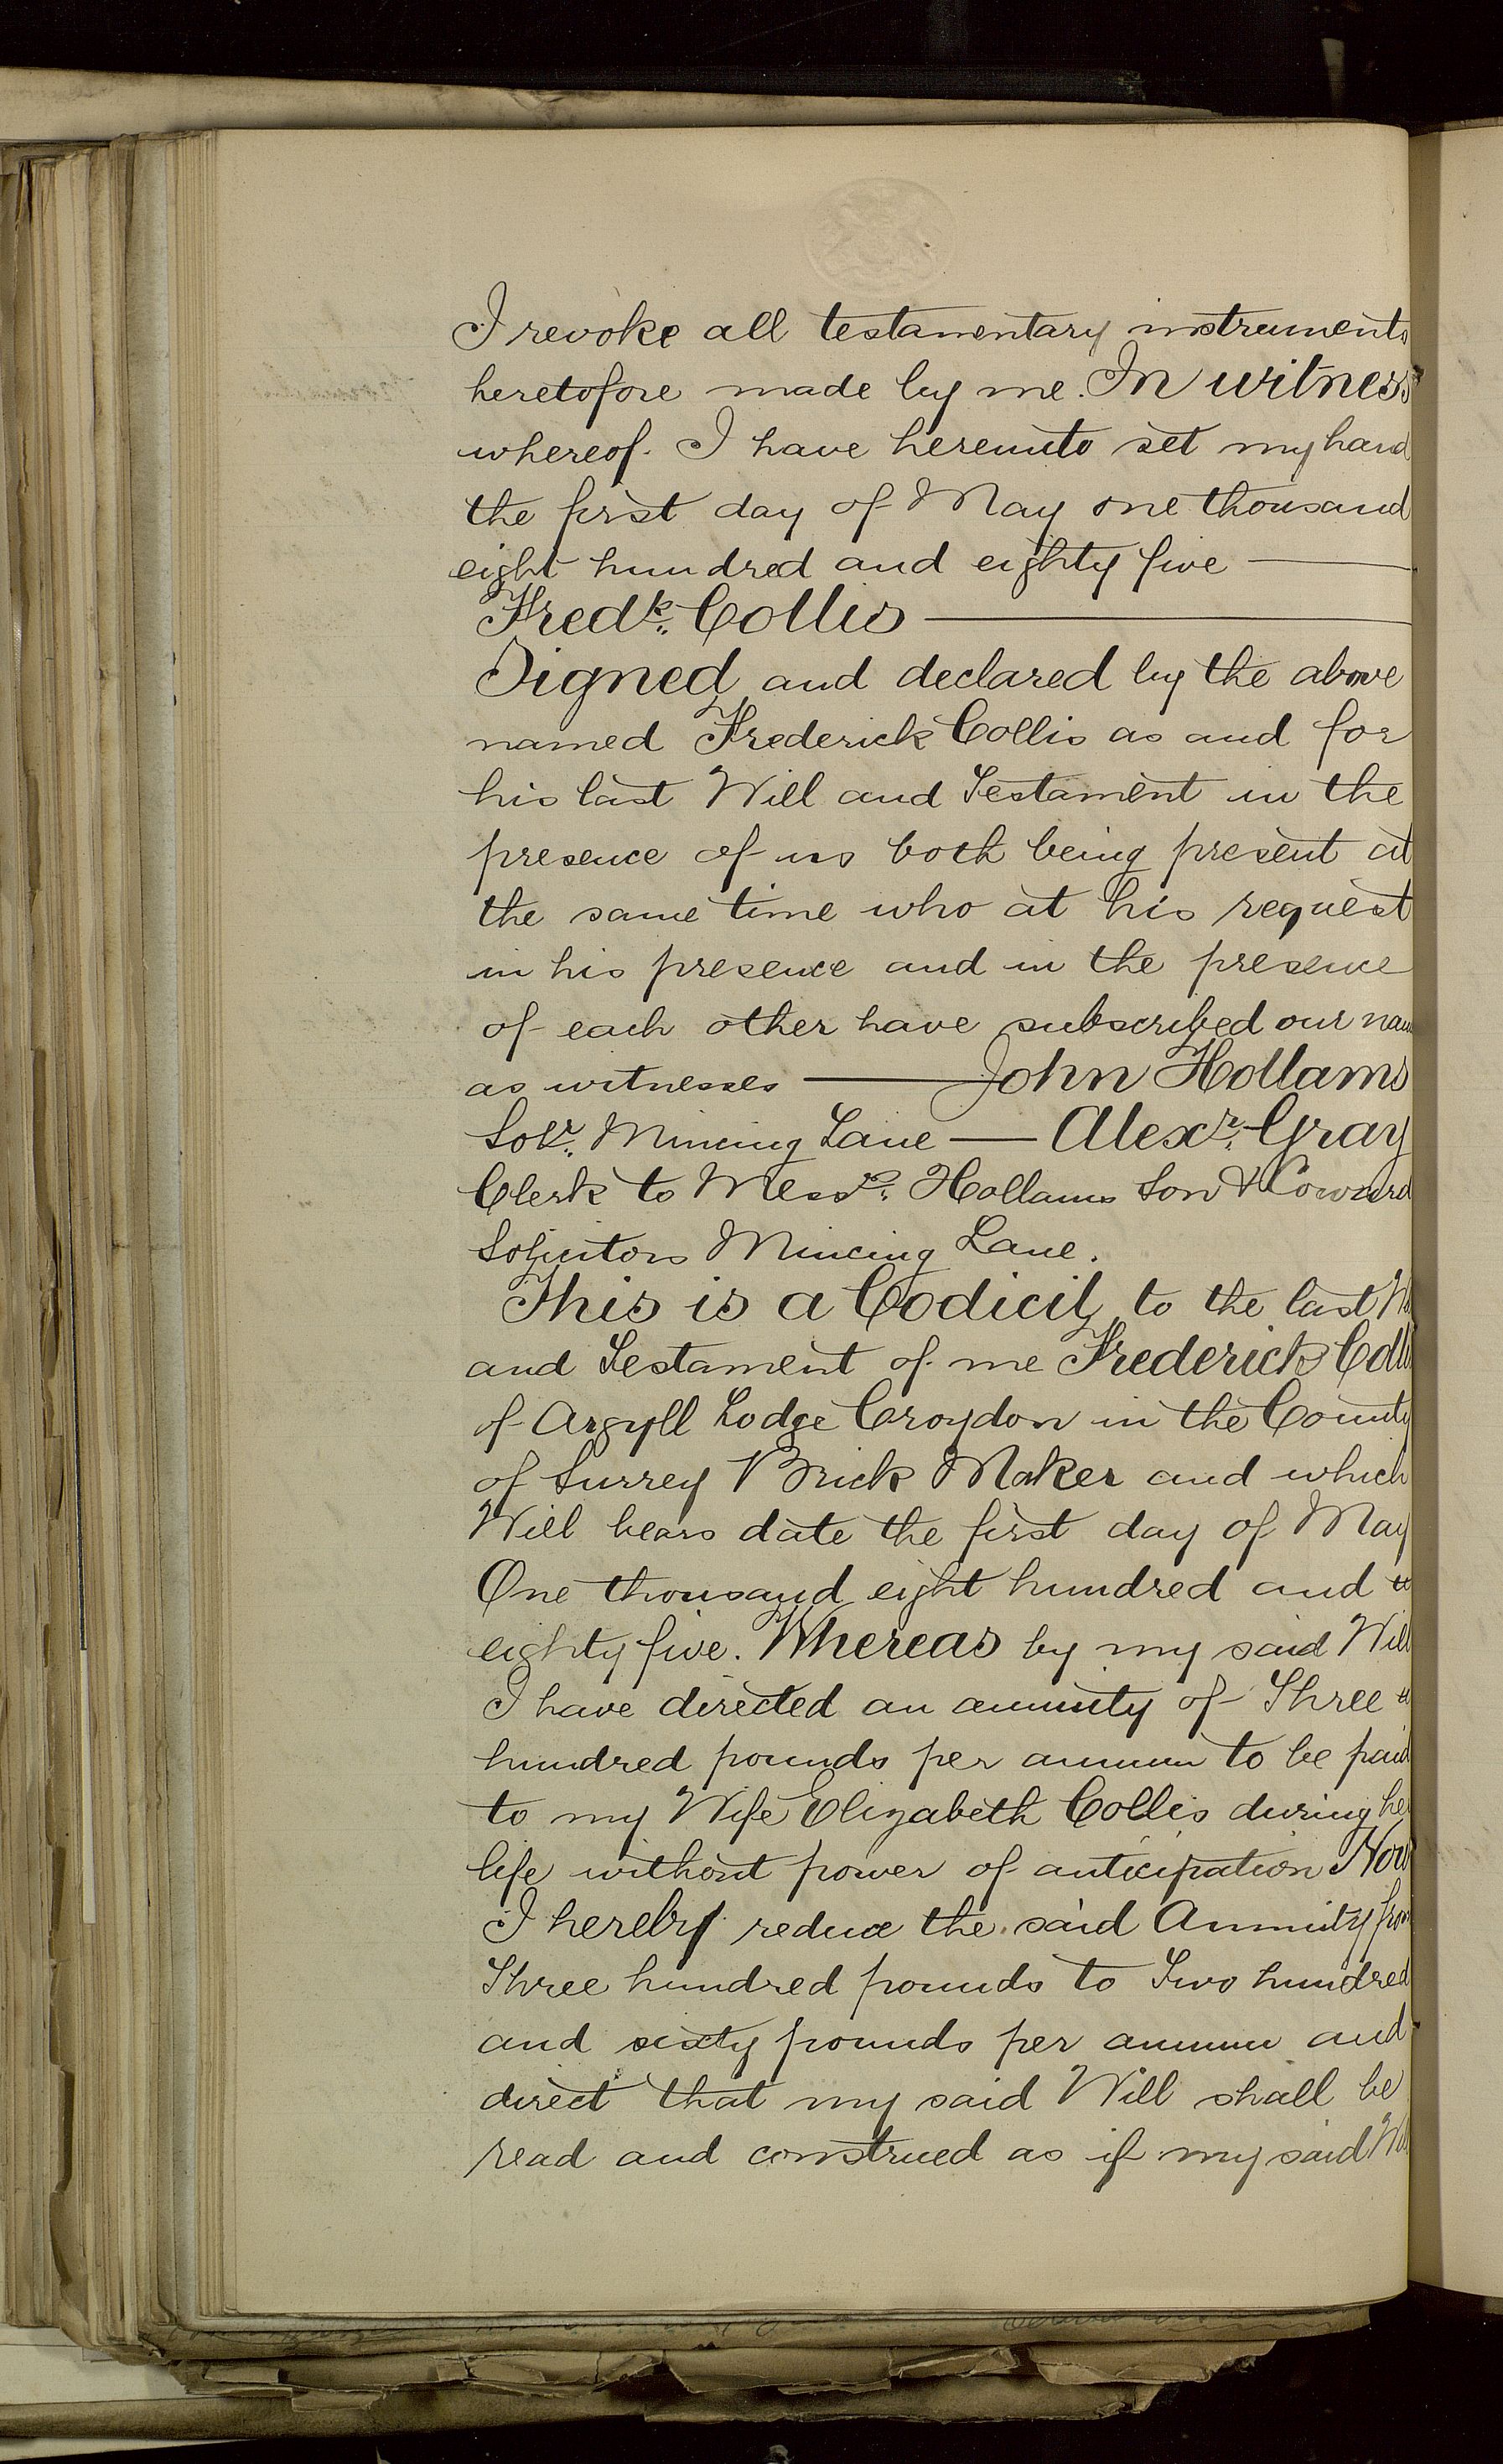 I revoke all testamentary instruments
heretofore made by me. In witness
whereof. I have hereunto set my hand
the first day of May one thousand
eight hundred and eighty five —
Fredk. Collis —
Signed and declared by the above
named Frederick Collis as and for
his last Will and Testament in the
presence of us both being present at
the same time who at his request
in his presence and in the presence
of each other have subscribed our nam
as witnesses — John Hollams
Solr. Mincing Lane — Alexr. Gray
Clerk to Messrs. Hollams Son & Coward
Solicitors Mincing Lane.
This is a Codicil to the last Wi
and Testament of me Frederick Colli
of Argyll Lodge Croydon in the County
of Surrey Brick Maker and which
Will bears date the first day of May
One thousand eight hundred and
eighty five. Whereas by my said Will
I have directed an annuity of Three
hundred pounds per annum to be paid
to my Wife Elizabeth Collis during her
life without power of anticipation Now
I hereby reduce the said Annuity from
Three hundred pounds to Two hundred
and sixty pounds per annum and
direct that my said Will shall be
read and construed as if my said Wil